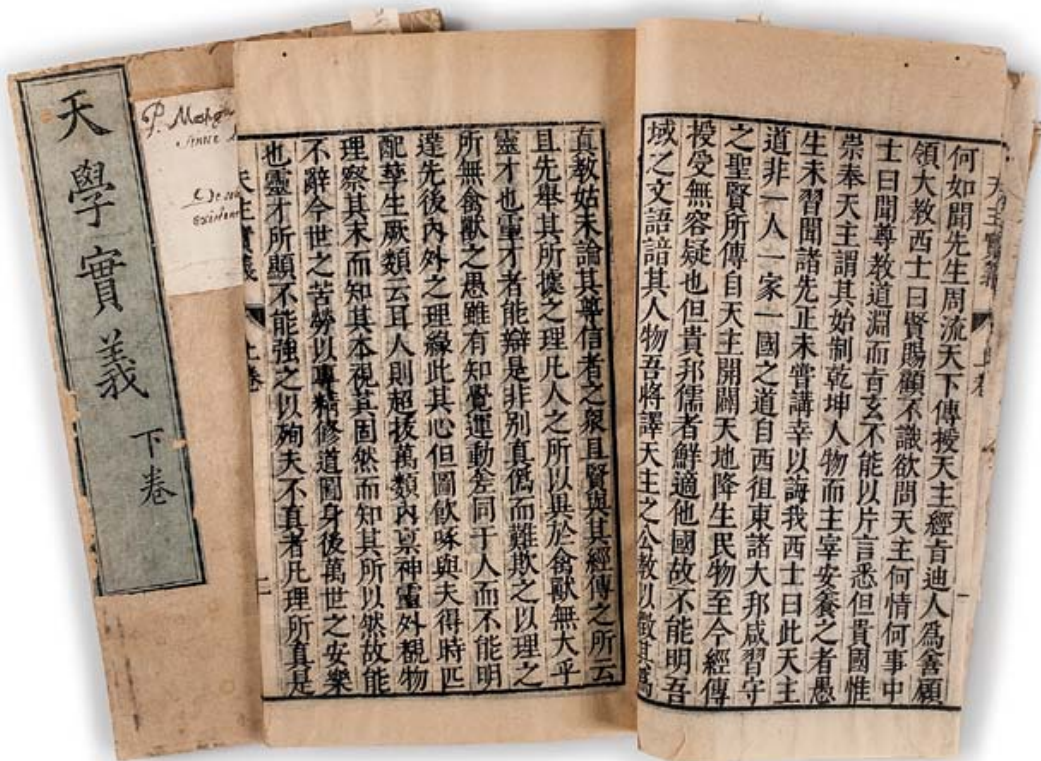 天學實義
下卷
天主實義
何如聞先生周流天下傳授天主經旨迪人為善願
領大教西士曰賢賜顧不識欲問天主何情何事中
士曰聞尊教道淵而旨玄不能以片言悉但貴國惟
崇奉天主謂其始制乾坤人物而主宰安養之者愚
生未習聞諸先正未嘗講幸以誨我西士曰此天主
道非一人一家一國之道自西徂東諸大邦咸習守
之聖賢所傳自天主開闢天地降生民物至今經傳
授受無容疑也但貴邦儒者鮮適他國故不能明吾
域之文語諳其人物吾將譯天主之公教以徵其為
真教姑未論其尊信者之衆且賢與其經傳之所云
且先舉其所據之理凡人之所以異於禽獸無大乎
靈才也靈才者能辯是非别真偽而難欺之以理之
所無禽獸之愚雖有知覺運動差同于人而不能明
達先後內外之理緣此其心但圖飲啄與夫得時匹
配孳生厥類云耳人則超拔萬類內禀神靈外覩物
理察其末而知其本視其固然而知其所以然故能
不辭今世之苦勞以專精修道圖身後萬世之安樂
也靈才所顯不能強之以殉夫不真者凡理所真是
天主實義 上卷